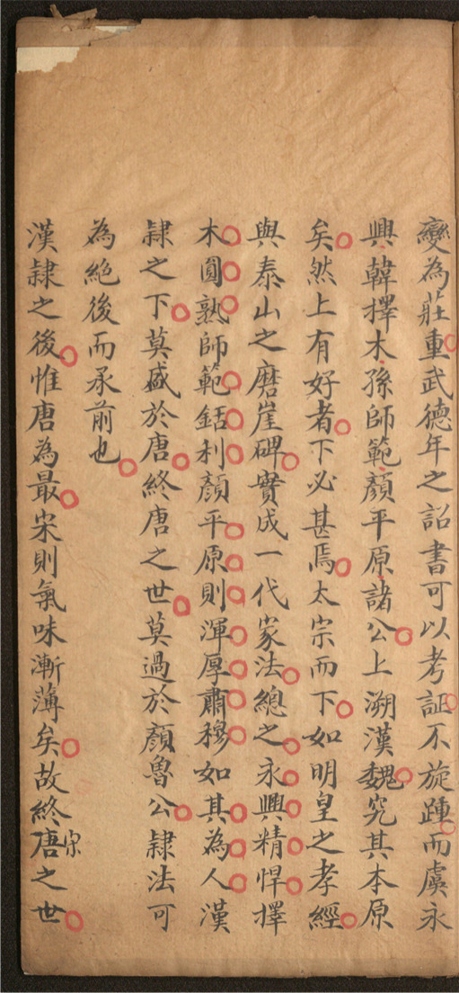 變為莊重武德年之詔書可以考証不旋踵而虞永
興韓擇木孫師範顏平原諸公上溯漢魏究其本原
矣然上有好者下必甚焉太宗而下如明皇之孝經
與泰山之磨崖碑實成一代家法總之永興精悍擇
木圓熟師範銛利顏平原則渾厚肅穆如其為人漢
隸之下莫盛於唐終唐之世莫過於顏魯公隸法可
為絕後而承前也
漢隸之後惟唐為最宋則氣味漸薄矣故終唐宋之世